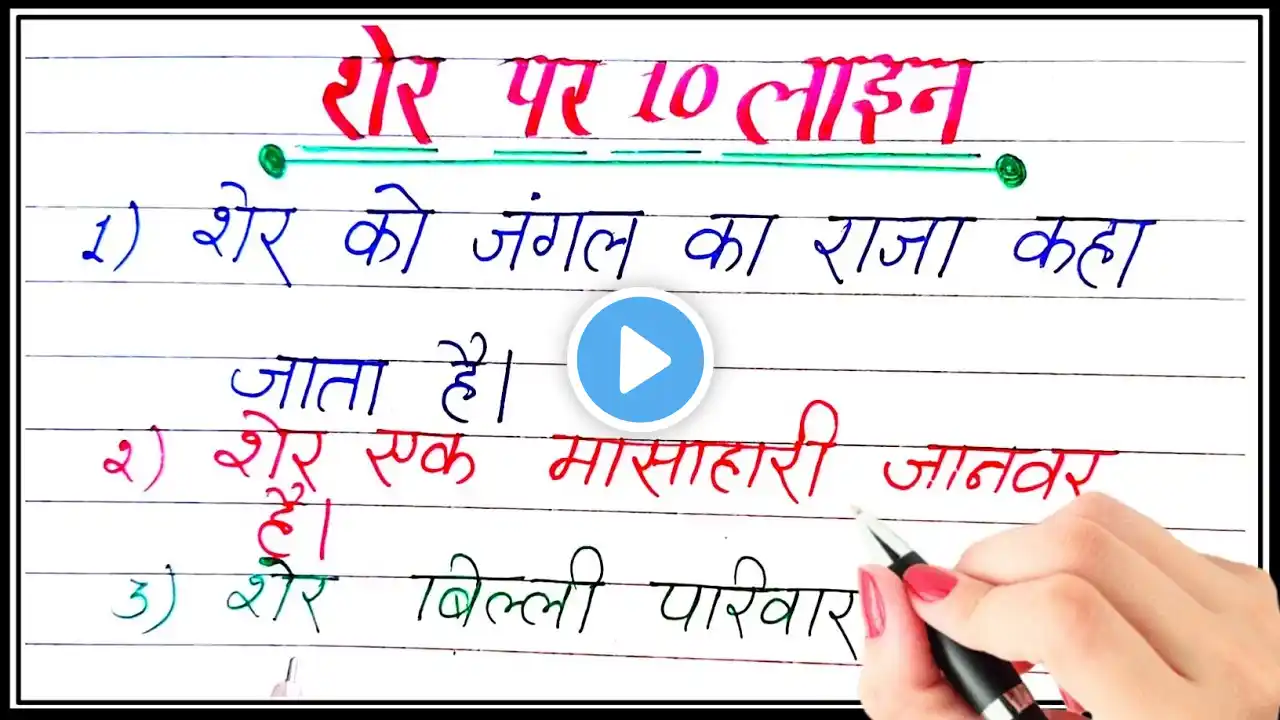 शेर पर 10 लाइन
1) शेर को जंगल का राजा कहा
जाता है।
२) शेर एक मासाहारी जानवर
है।
3) शेर बिल्ली परिवार